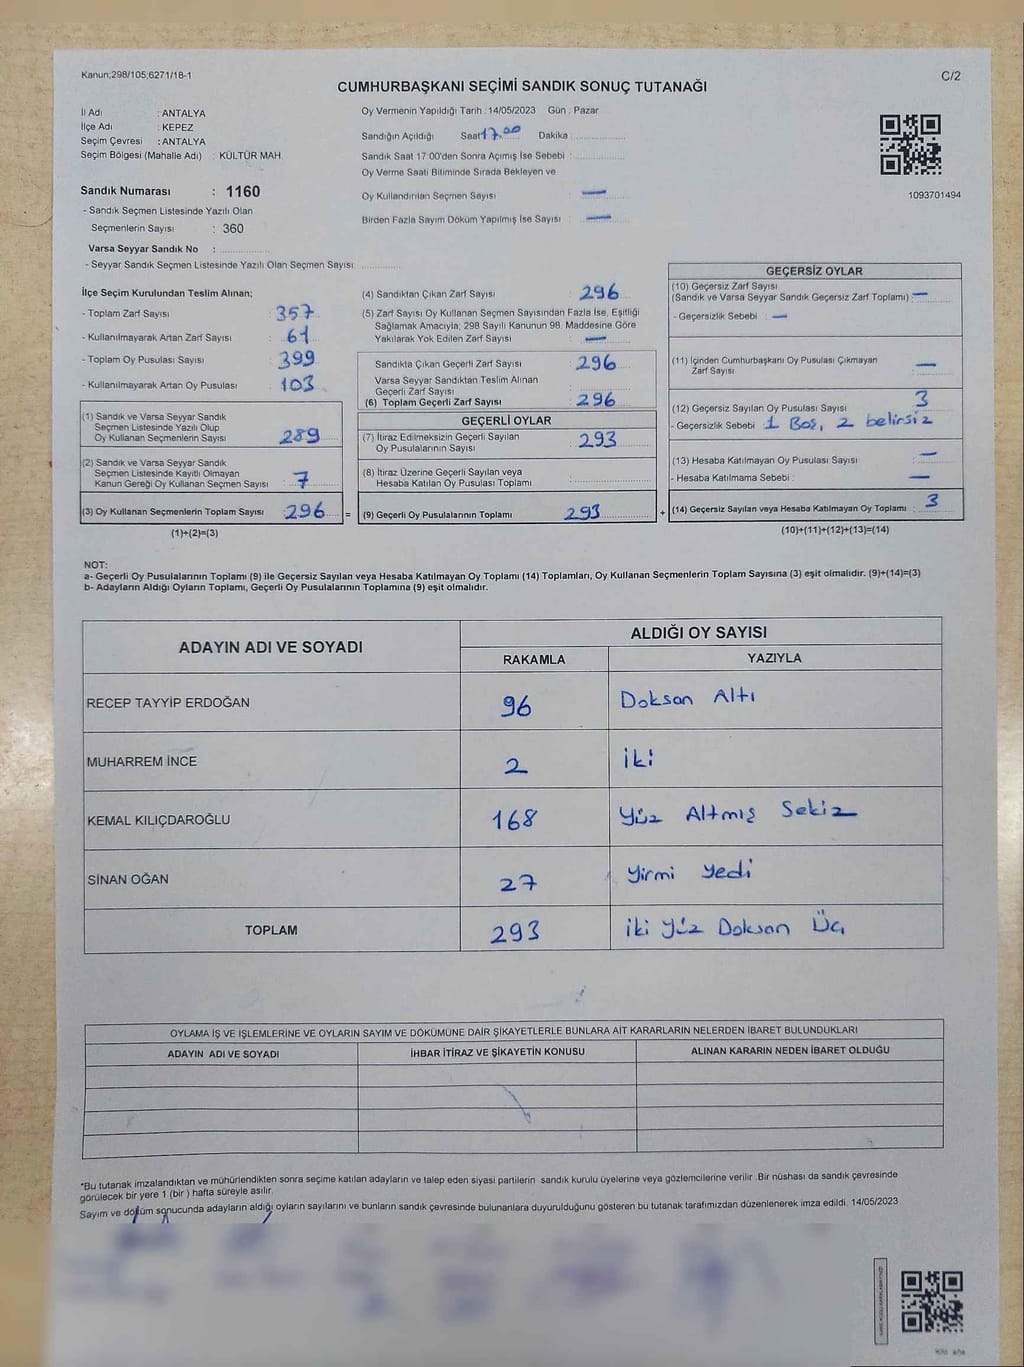 Kanun;298/105;6271/18-1
C/2
CUMHURBAŞKANI SEÇİMİ SANDIK SONUÇ TUTANAĞI
İl Adı : ANTALYA
İlçe Adı : KEPEZ
Seçim Çevresi : ANTALYA
Seçim Bölgesi (Mahalle Adı) : KÜLTÜR MAH.
Sandık Numarası : 1160
- Sandık Seçmen Listesinde Yazılı Olan
Seçmenlerin Sayısı : 360
Varsa Seyyar Sandık No :
- Seyyar Sandık Seçmen Listesinde Yazılı Olan Seçmen Sayısı:
Oy Vermenin Yapıldığı Tarih : 14/05/2023 Gün : Pazar
Sandığın Açıldığı Saat 17.00 Dakika :
Sandık Saat 17:00'den Sonra Açımış İse Sebebi :
Oy Verme Saati Bitiminde Sırada Bekleyen ve
Oy Kullandırılan Seçmen Sayısı : —
Birden Fazla Sayım Döküm Yapılmış İse Sayısı : —
1093701494
İlçe Seçim Kurulundan Teslim Alınan;
- Toplam Zarf Sayısı : 357
- Kullanılmayarak Artan Zarf Sayısı : 61
- Toplam Oy Pusulası Sayısı : 399
- Kullanılmayarak Artan Oy Pusulası : 103
(1) Sandık ve Varsa Seyyar Sandık
Seçmen Listesinde Yazılı Olup
Oy Kullanan Seçmenlerin Sayısı : 289
(2) Sandık ve Varsa Seyyar Sandık
Seçmen Listesinde Kayıtlı Olmayan
Kanun Gereği Oy Kullanan Seçmen Sayısı : 7
(3) Oy Kullanan Seçmenlerin Toplam Sayısı : 296 =
(1)+(2)=(3)
(4) Sandıktan Çıkan Zarf Sayısı : 296
(5) Zarf Sayısı Oy Kullanan Seçmen Sayısından Fazla İse, Eşitliği
Sağlamak Amacıyla; 298 Sayılı Kanunun 98. Maddesine Göre
Yakılarak Yok Edilen Zarf Sayısı : —
Sandıkta Çıkan Geçerli Zarf Sayısı : 296
Varsa Seyyar Sandıktan Teslim Alınan
Geçerli Zarf Sayısı :
(6) Toplam Geçerli Zarf Sayısı : 296
GEÇERLİ OYLAR
(7) İtiraz Edilmeksizin Geçerli Sayılan
Oy Pusulalarının Sayısı : 293
(8) İtiraz Üzerine Geçerli Sayılan veya
Hesaba Katılan Oy Pusulası Toplamı :
(9) Geçerli Oy Pusulalarının Toplamı : 293 +
GEÇERSİZ OYLAR
(10) Geçersiz Zarf Sayısı
(Sandık ve Varsa Seyyar Sandık Geçersiz Zarf Toplamı) : —
- Geçersizlik Sebebi : —
(11) İçinden Cumhurbaşkanı Oy Pusulası Çıkmayan
Zarf Sayısı : —
(12) Geçersiz Sayılan Oy Pusulası Sayısı : 3
- Geçersizlik Sebebi : 1 Boş, 2 belirsiz
(13) Hesaba Katılmayan Oy Pusulası Sayısı : —
- Hesaba Katılmama Sebebi : —
(14) Geçersiz Sayılan veya Hesaba Katılmayan Oy Toplamı : 3
(10)+(11)+(12)+(13)=(14)
NOT:
a- Geçerli Oy Pusulalarının Toplamı (9) ile Geçersiz Sayılan veya Hesaba Katılmayan Oy Toplamı (14) Toplamları, Oy Kullanan Seçmenlerin Toplam Sayısına (3) eşit olmalıdır. (9)+(14)=(3)
b- Adayların Aldığı Oyların Toplamı, Geçerli Oy Pusulalarının Toplamına (9) eşit olmalıdır.
ADAYIN ADI VE SOYADI
ALDIĞI OY SAYISI
RAKAMLA YAZIYLA
RECEP TAYYİP ERDOĞAN 96 Doksan Altı
MUHARREM İNCE 2 İki
KEMAL KILIÇDAROĞLU 168 Yüz Altmış Sekiz
SİNAN OĞAN 27 Yirmi Yedi
TOPLAM 293 İki Yüz Doksan Üç
OYLAMA İŞ VE İŞLEMLERİNE VE OYLARIN SAYIM VE DÖKÜMÜNE DAİR ŞİKAYETLERLE BUNLARA AİT KARARLARIN NELERDEN İBARET BULUNDUKLARI
ADAYIN ADI VE SOYADI İHBAR İTİRAZ VE ŞİKAYETİN KONUSU ALINAN KARARIN NEDEN İBARET OLDUĞU
*Bu tutanak imzalandıktan ve mühürlendikten sonra seçime katılan adayların ve talep eden siyasi partilerin sandık kurulu üyelerine veya gözlemcilerine verilir. Bir nüshası da sandık çevresinde
görülecek bir yere 1 (bir) hafta süreyle asılır.
Sayım ve döküm sonucunda adayların aldığı oyların sayılarını ve bunların sandık çevresinde bulunanlara duyurulduğunu gösteren bu tutanak tarafımızdan düzenlenerek imza edildi. 14/05/2023